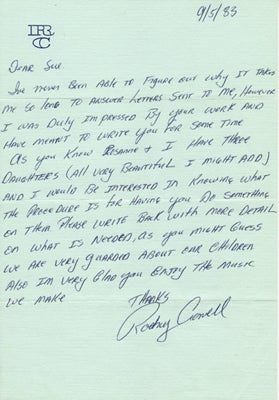 RC
9/5/83
Dear Sue.
I've never Been Able to Figure out why It takes
me so long to answer letters sent to me, However
I was Duly Impressed By your work and
Have meant to write you for some time
As you know Rosanne & I Have three
Daughters (all very Beautiful I might add)
and I would Be Interested in knowing what
the procedure is for Having you Do something
on them. Please write Back with more Detail
on what Is needed, as you might Guess
we are very guarded about our children
Also I'm very Glad you Enjoy The music
we make
Thanks
Rodney Crowell